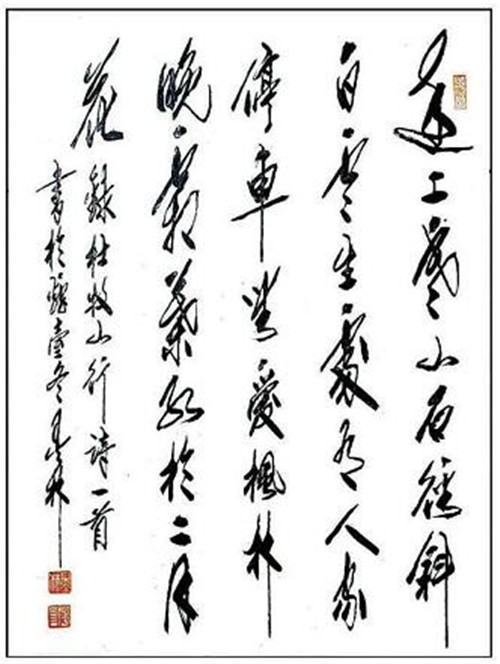 遠上寒山石徑斜
白雲生處有人家
停車坐愛楓林
晚霜葉紅於二月
花
錄杜牧山行詩一首
書於冬林